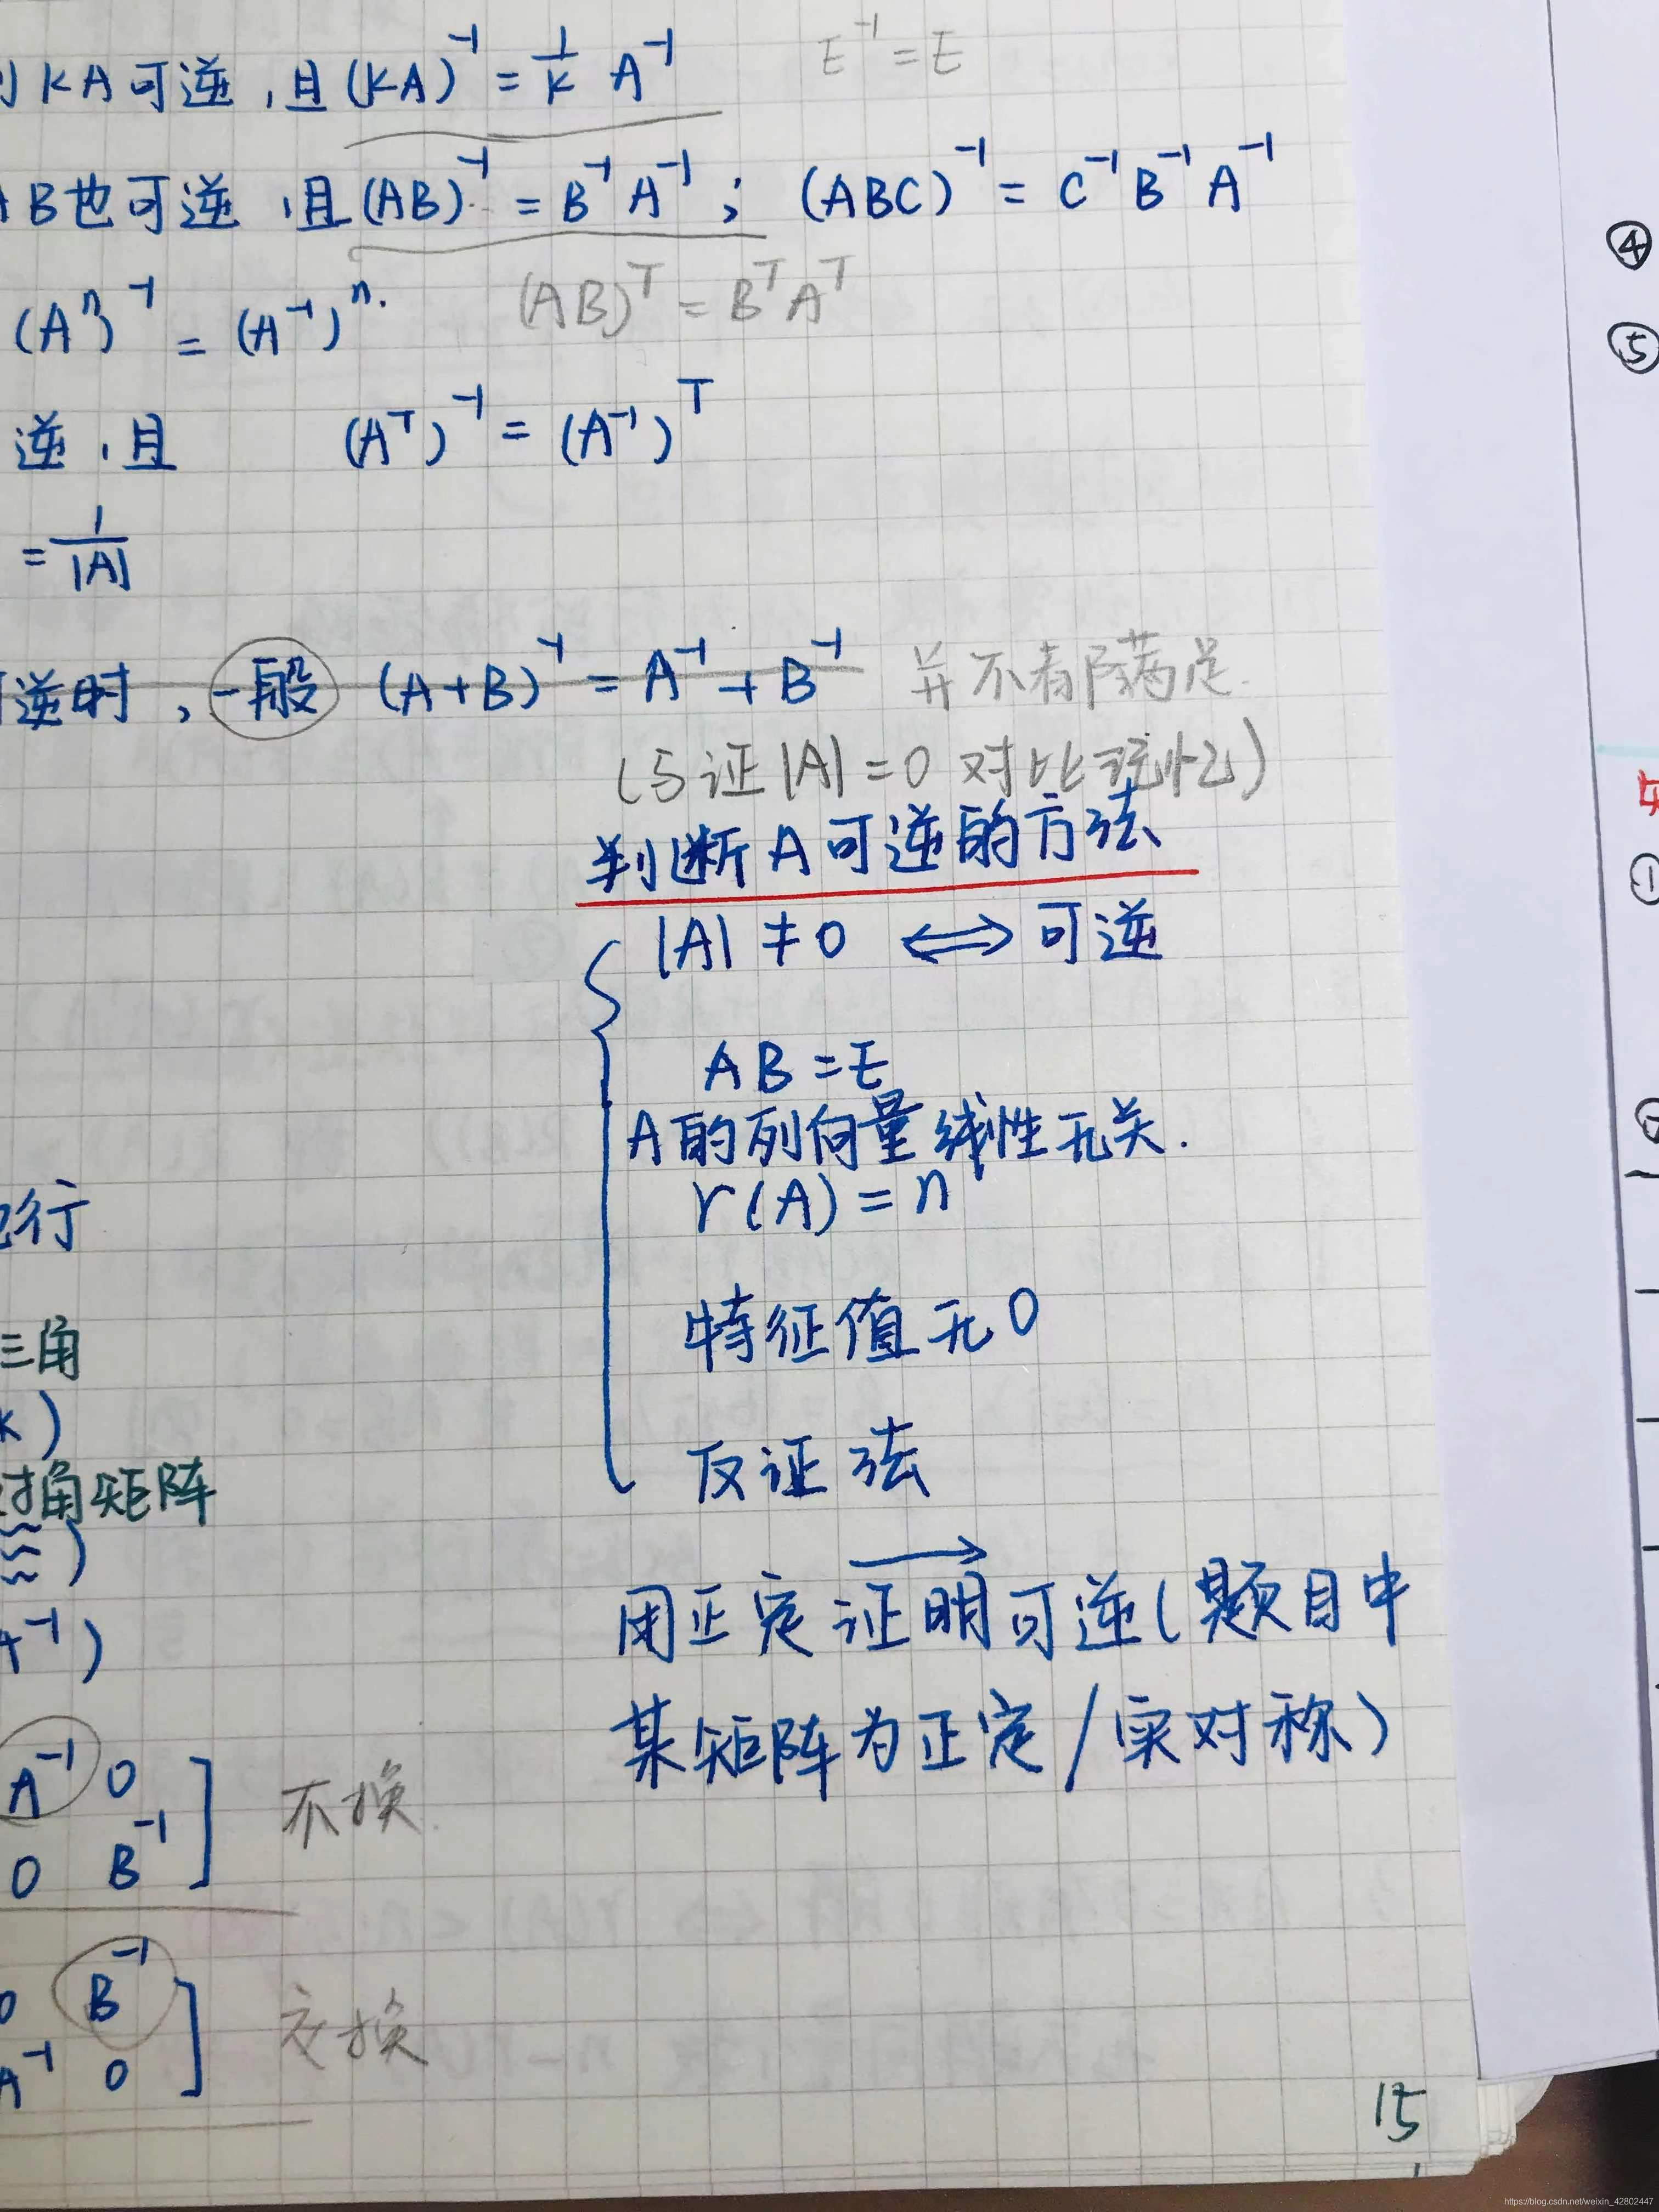 KA可逆,且(KA)⁻¹ = 1/K A⁻¹ E⁻¹ = E
B也可逆,且(AB)⁻¹ = B⁻¹A⁻¹; (ABC)⁻¹ = C⁻¹B⁻¹A⁻¹
(AB)ᵀ = BᵀAᵀ
(Aⁿ)⁻¹ = (A⁻¹)ⁿ.
逆,且 (Aᵀ)⁻¹ = (A⁻¹)ᵀ
= 1/|A|
逆时,一般 (A+B)⁻¹ = A⁻¹ + B⁻¹ 并不都满足.
(与证|A|=0 对比记忆)
判断A可逆的方法
|A| ≠ 0 ⟺ 可逆
AB = E
A的列向量线性无关.
r(A) = n
特征值无0
反证法
用正定证明可逆(题目中
某矩阵为正定/实对称)
行
三角
K)
对角矩阵
A⁻¹)
A⁻¹ 0
0 B⁻¹
不换
0 B⁻¹
A⁻¹ 0
交换
15
④
⑤
①
https://blog.csdn.net/weixin_42802447